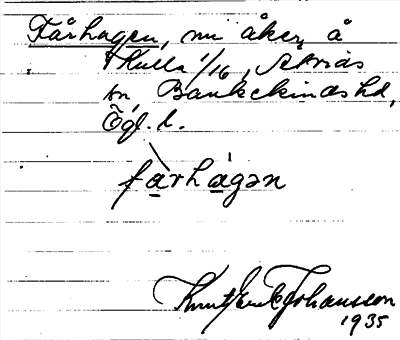 Fårhagen, nu åker, å
Kulla 1/16, Askeryds
sn, Bankekinds hd,
Ögl. l.
fàrhágən
Knut Erik Johansson
1935